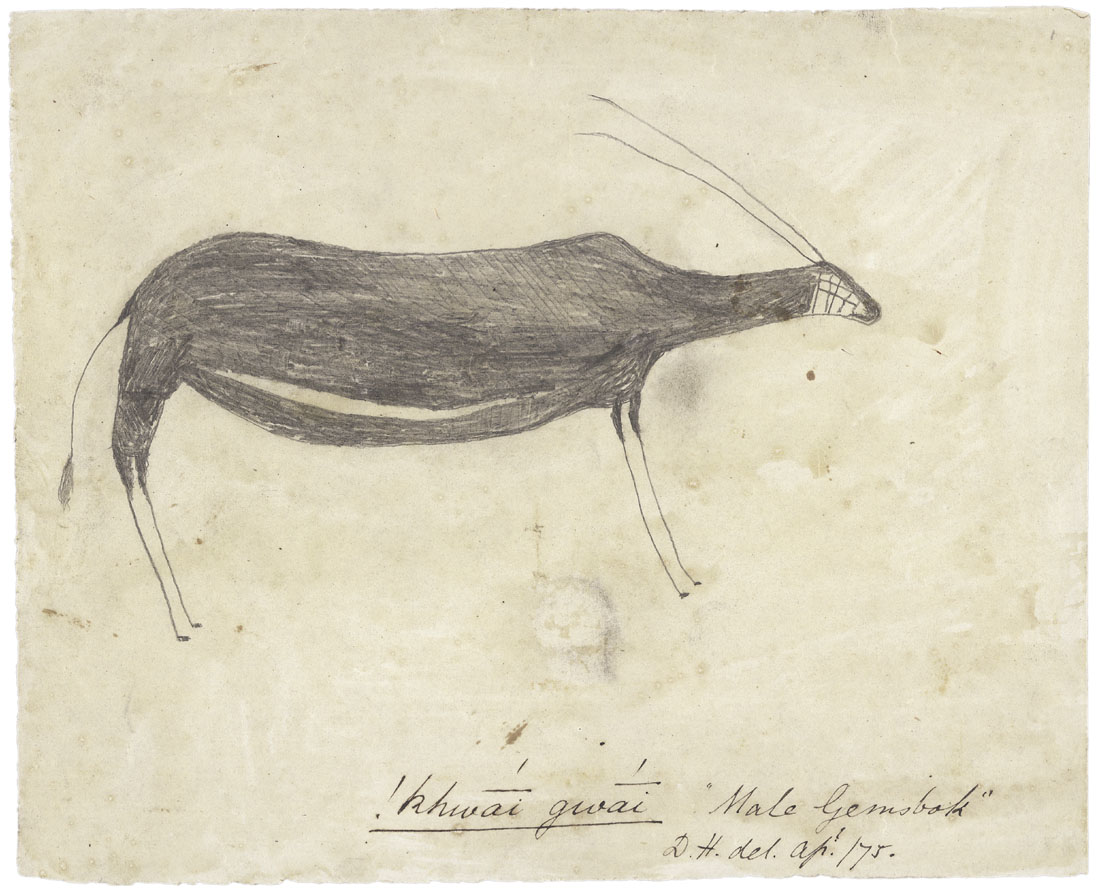 !khwāí gwāí "Male Gemsbok"
D. H. del. Apl. /75.